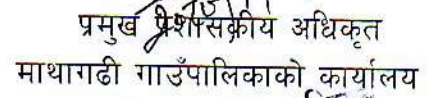 प्रमुख प्रशासकीय अधिकृत
माथागढी गाउँपालिकाको कार्यालय